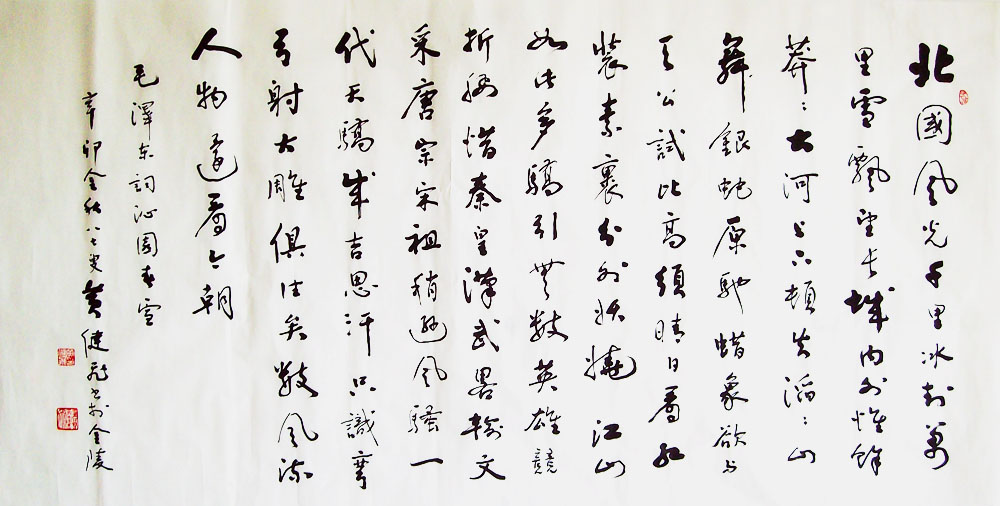 北國風光千里冰封萬
里雪飄望長城内外惟餘
莽〻大河上下頓失滔〻山
舞銀蛇原馳蜡象欲與
天公試比高須晴日看紅
裝素裹分外妖嬈江山
如此多驕引無數英雄競
折腰惜秦皇漢武畧輸文
采唐宗宋祖稍遜風騷一
代天驕成吉思汗只識彎
弓射大雕俱往矣數風流
人物還看今朝
毛澤东詞沁園春雪
辛卯金秋八七叟黄健書於金陵